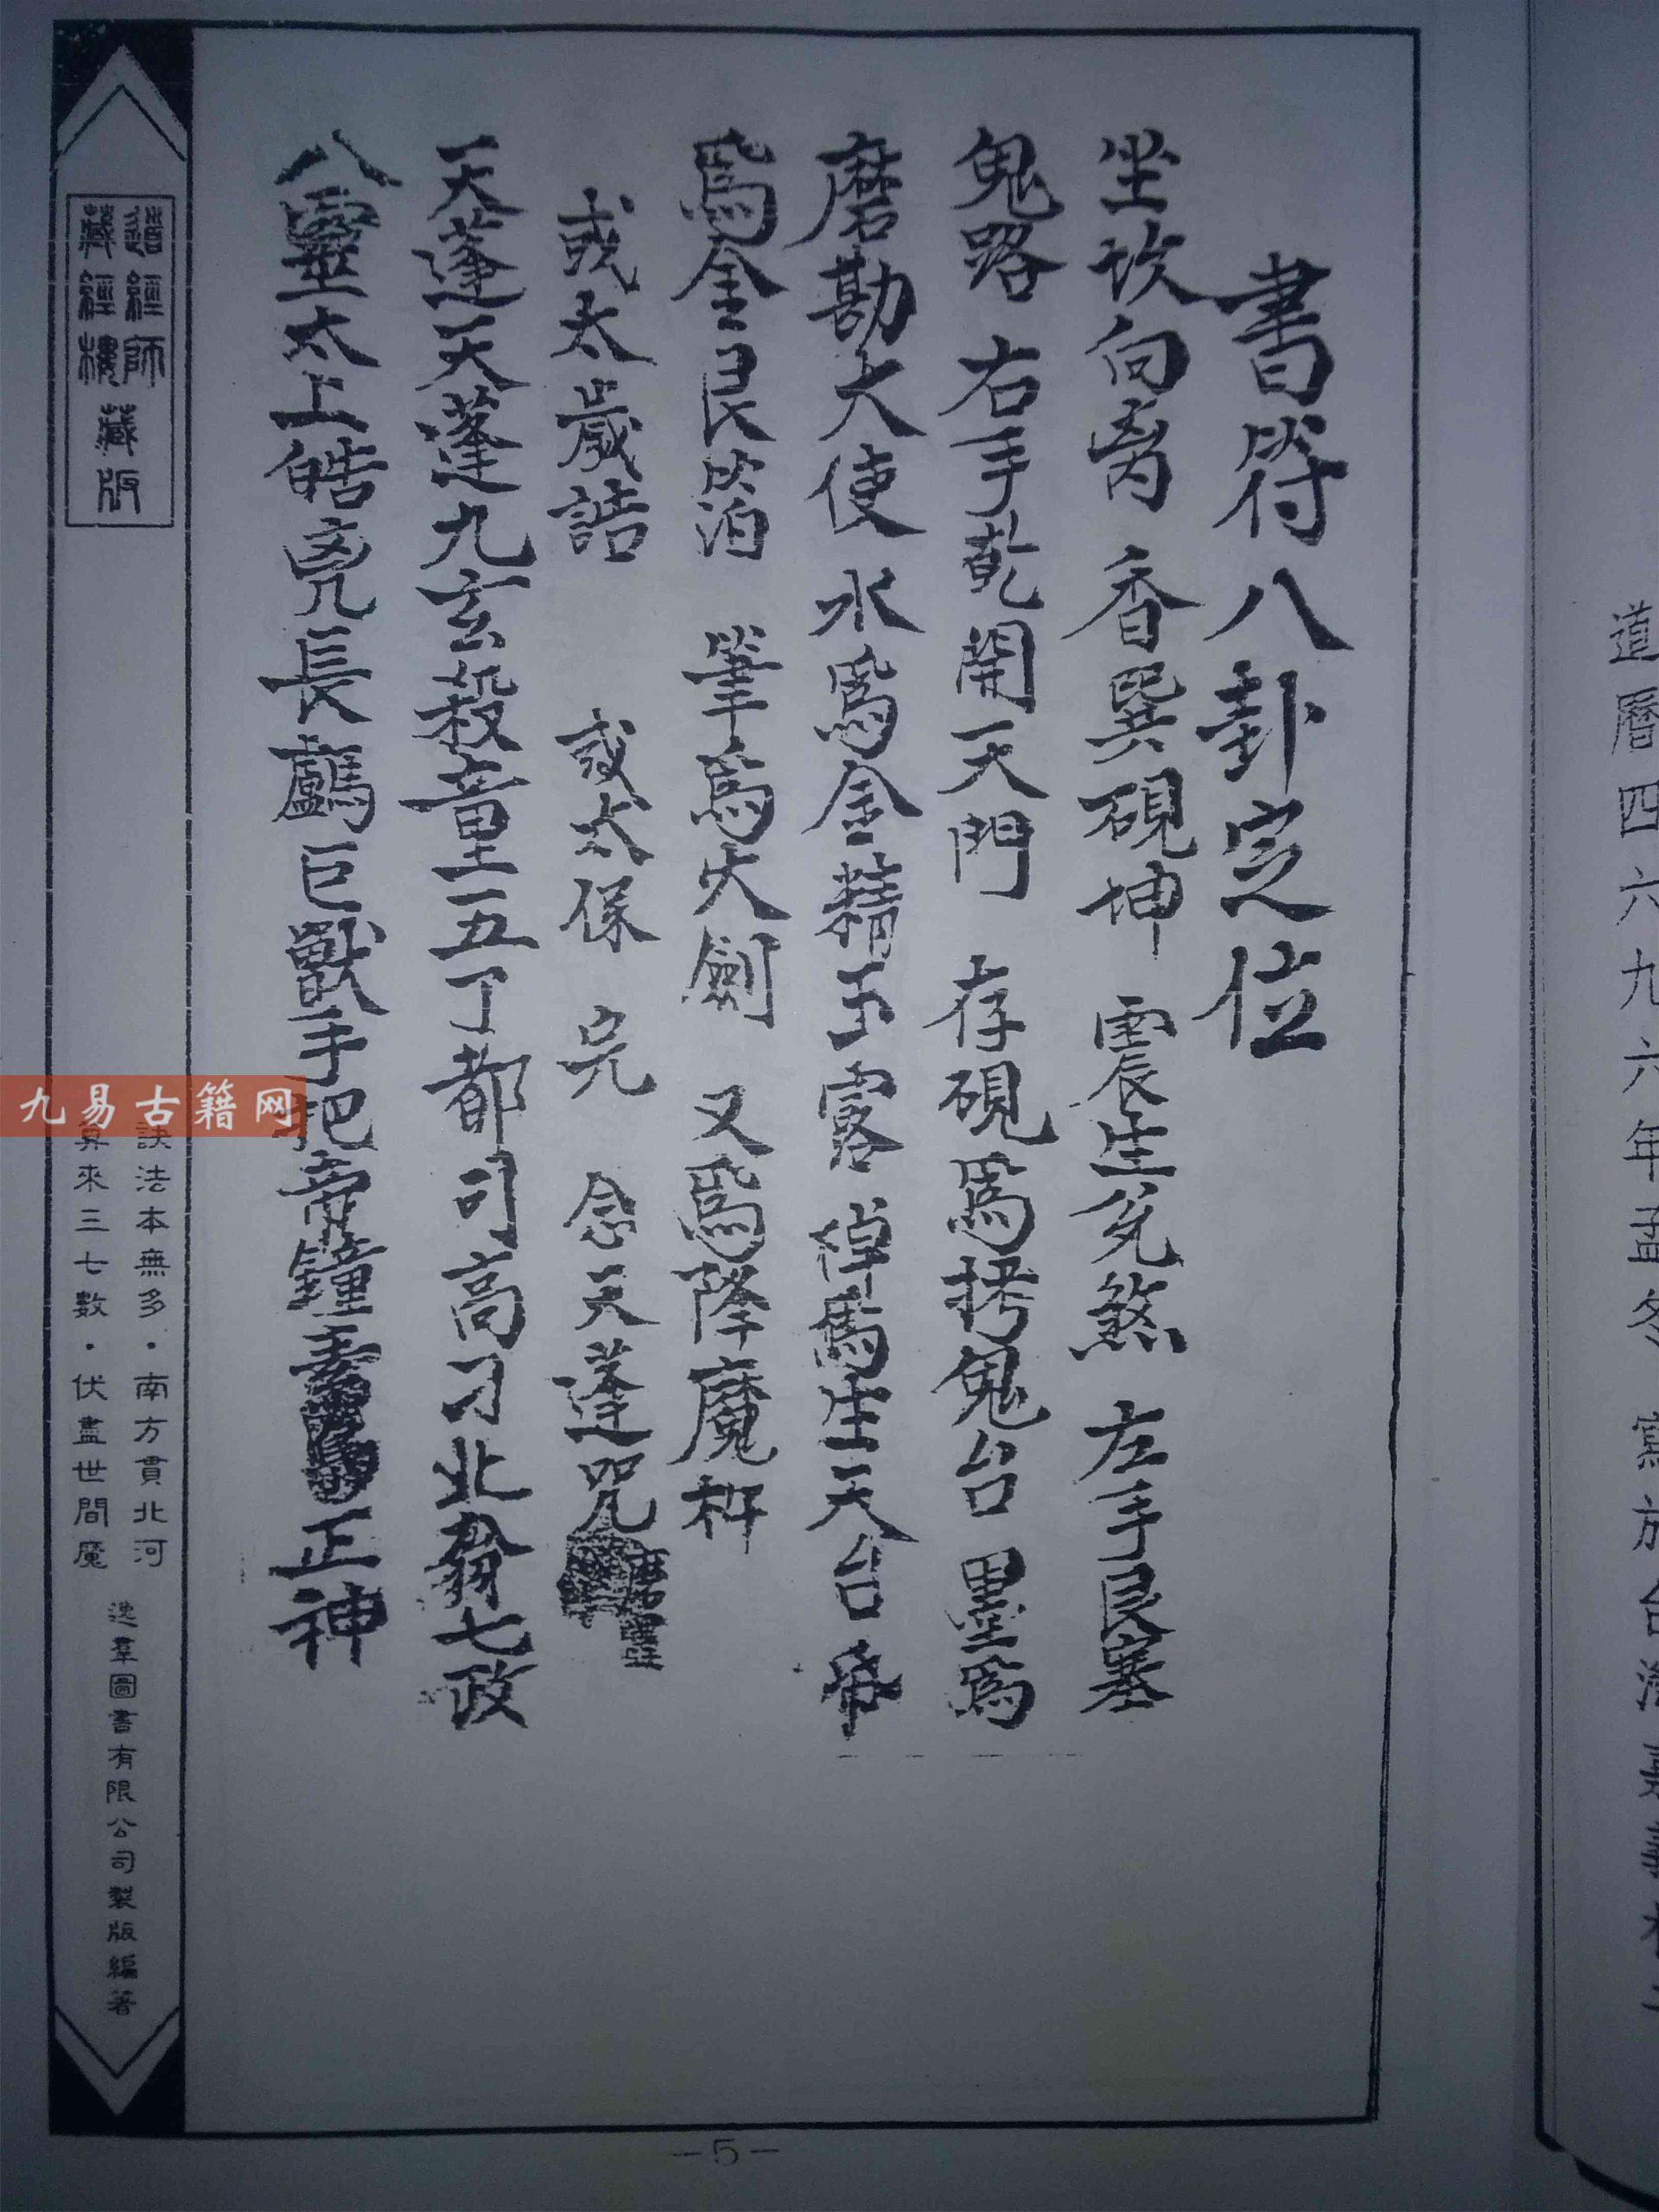 書符八卦定位
坐坎向离 香巽硯坤 震生兑煞 左手艮塞
鬼路 右手乾開天門 存硯為拷鬼台 墨為
磨勘大使 水為金精玉露 為生天台 帋
為金艮箔 筆為火劍 又為降魔杵
或太歲誥 或太保 完 念天蓬咒
天蓬天蓬九玄殺童五丁都司高刁北翁七政
八靈太上皓兇長顱巨獸手把帝鐘素正神
道經師
藏經樓
藏版
訣法本無多·南方貫北河
算來三七數·伏盡世間魔
逸羣圖書有限公司製版編著
九易古籍网
-5-
道曆四六九六年孟冬